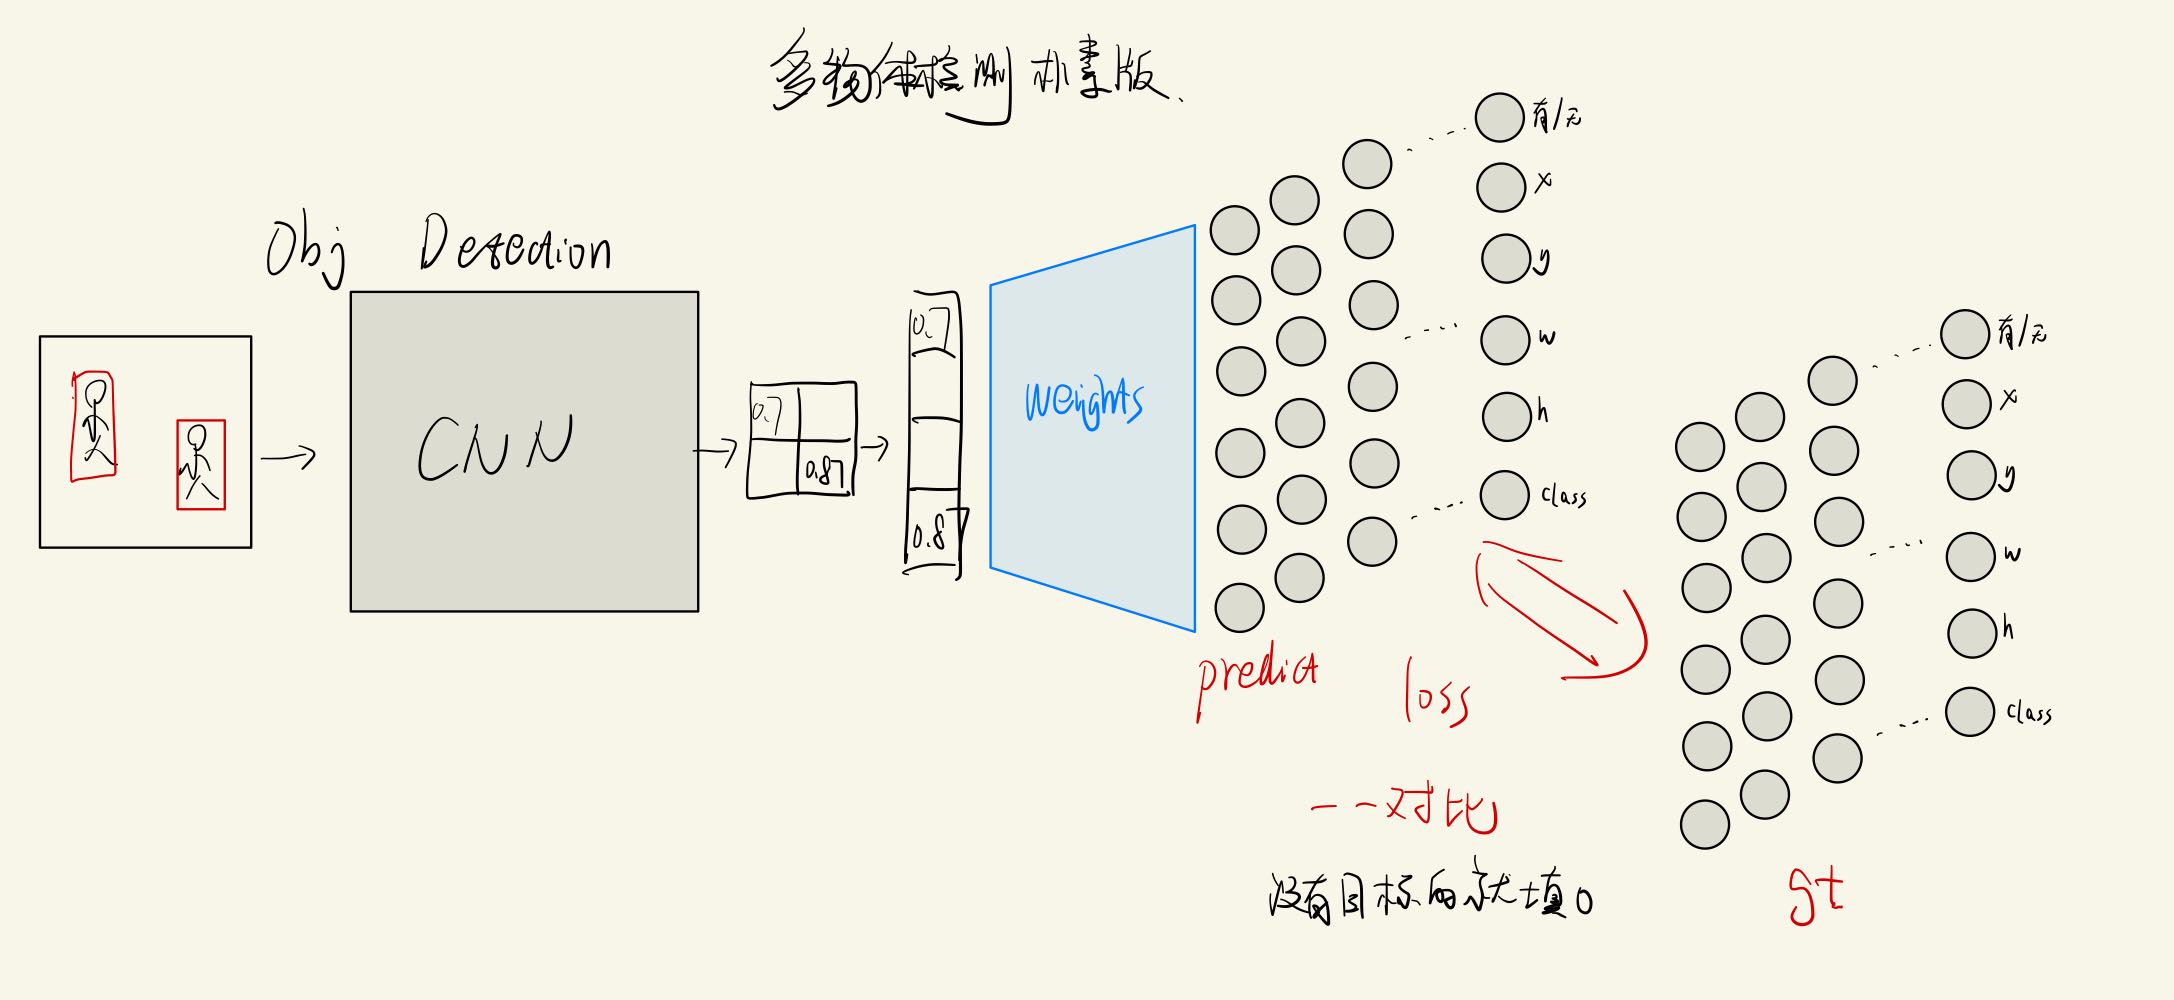 多物体检测 朴素版.
Obj Detection
CNN
0.7
0.87
0.7
0.8
weights
有/无
x
y
w
h
class
predict
loss
一一对比
没有目标的就填0
有/无
x
y
w
h
class
gt